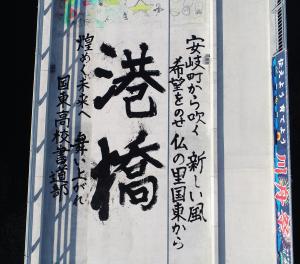 安岐町から吹く 新しい風
希望をのせ 仏の里国東から
港橋
煌めく未来へ 舞い上がれ
国東高校書道部